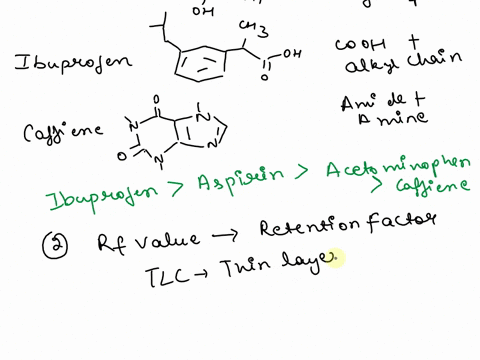 OH
CH3
OH
O
Ibuprofen
COOH +
alkyl chain
O
N
N
O
N
N
Caffiene
Amide +
Amine
Ibuprofen > Aspirin > Acetominophen
> Caffiene
② Rf value → Retention factor
TLC → Thin layer